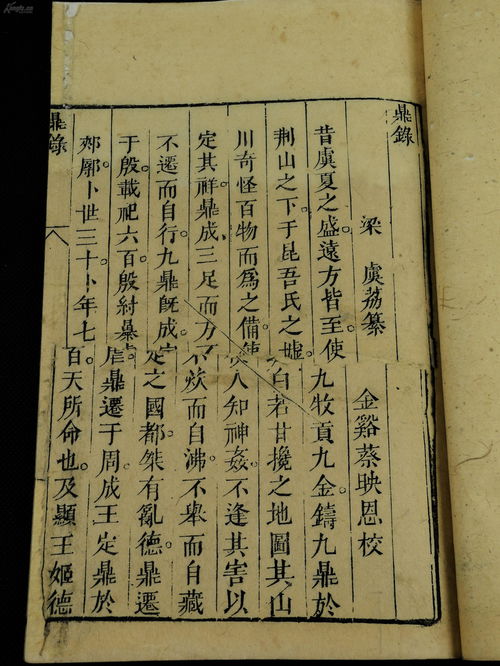 鼎錄
梁 虞荔纂 金谿蔡映恩校
昔虞夏之盛遠方皆至使九牧貢九金鑄九鼎於
荆山之下于昆吾氏之墟白若甘攙之地圖其山
川奇怪百物而爲之備使人知神姦不逢其害以
定其祥鼎成三足而方不炊而自沸不舉而自藏
不遷而自行九鼎旣成定之國都桀有亂德鼎遷
于殷載祀六百殷紂暴虐鼎遷于周成王定鼎於
郟鄏卜世三十卜年七百天所命也及顯王姬德
鼎錄